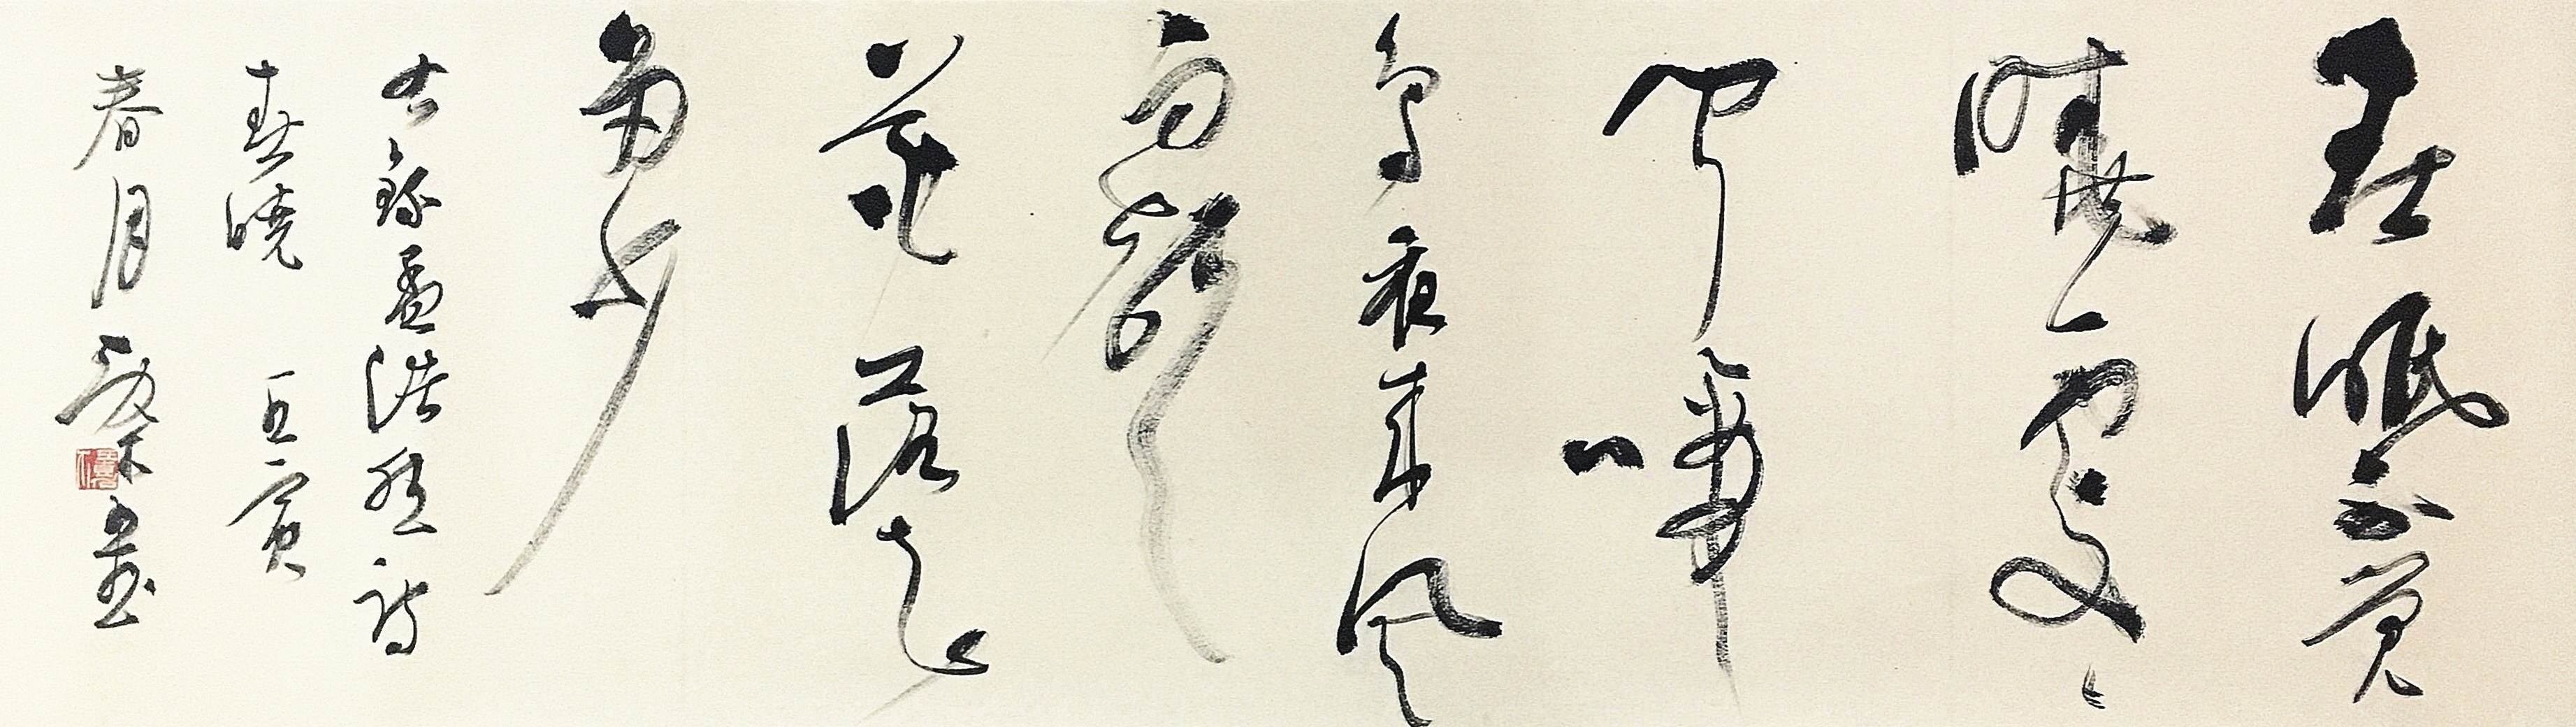 春眠不觉
晓处处
闻啼
鸟夜来风
雨声
花落知
多少
右录孟浩然诗
春晓 壬寅
春月